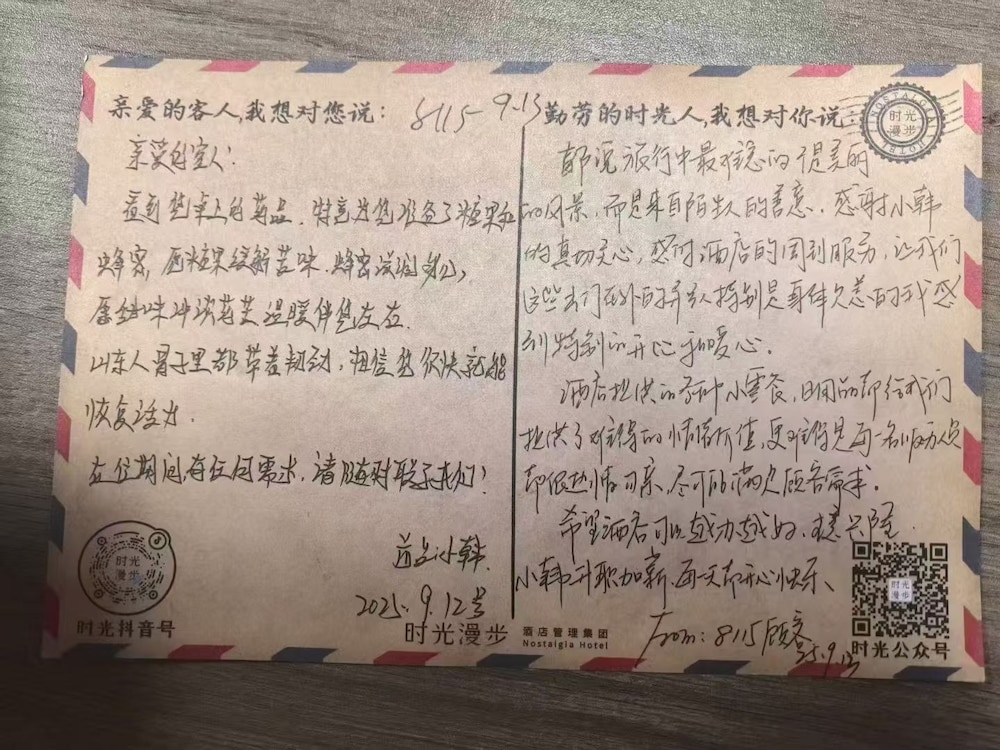 亲爱的客人,我想对您说:
8115 9.13
亲爱的客人:
看到您桌上的药品,特意为您准备了糖果和
蜂蜜,愿糖果缓解苦味,蜂蜜滋润
愿甜味冲淡药苦,温暖伴您左右.
山东人骨子里都带着韧劲,相信您很快就能
恢复活力.
在住期间有任何需求,请随时联系我们!
小韩.
2025.9.12号
时光抖音号
时光漫步
时光漫步 酒店管理集团
Nostalgia Hotel
勤劳的时光人,我想对你说:
NOSTALGIA
时光
漫步
HOTEL
都说旅行中最难忘的不是美丽
的风景,而是来自陌生人的善意.感谢小韩
的真切关心,感谢酒店的周到服务,让我们
这些出门在外的异乡人特别是身体欠恙的我感
到特别的开心和暖心。
酒店提供的各种小零食,日用品都给我们
提供了难得的情绪价值,更难得是每一名服务人员
都很热情可亲,尽可能满足顾客需求。
希望酒店可以越办越好,生意兴隆.
小韩升职加薪,每天都开心快乐、
From: 8115顾客
25.9.13
时光
漫步
时光公众号